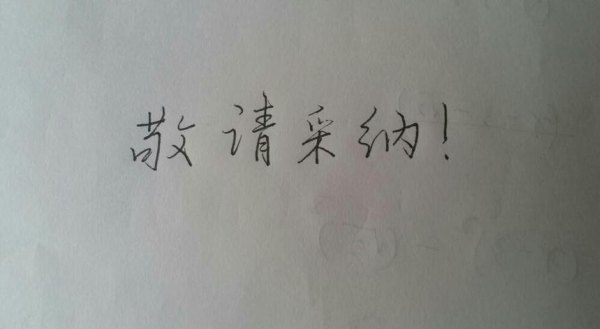 敬请采纳!